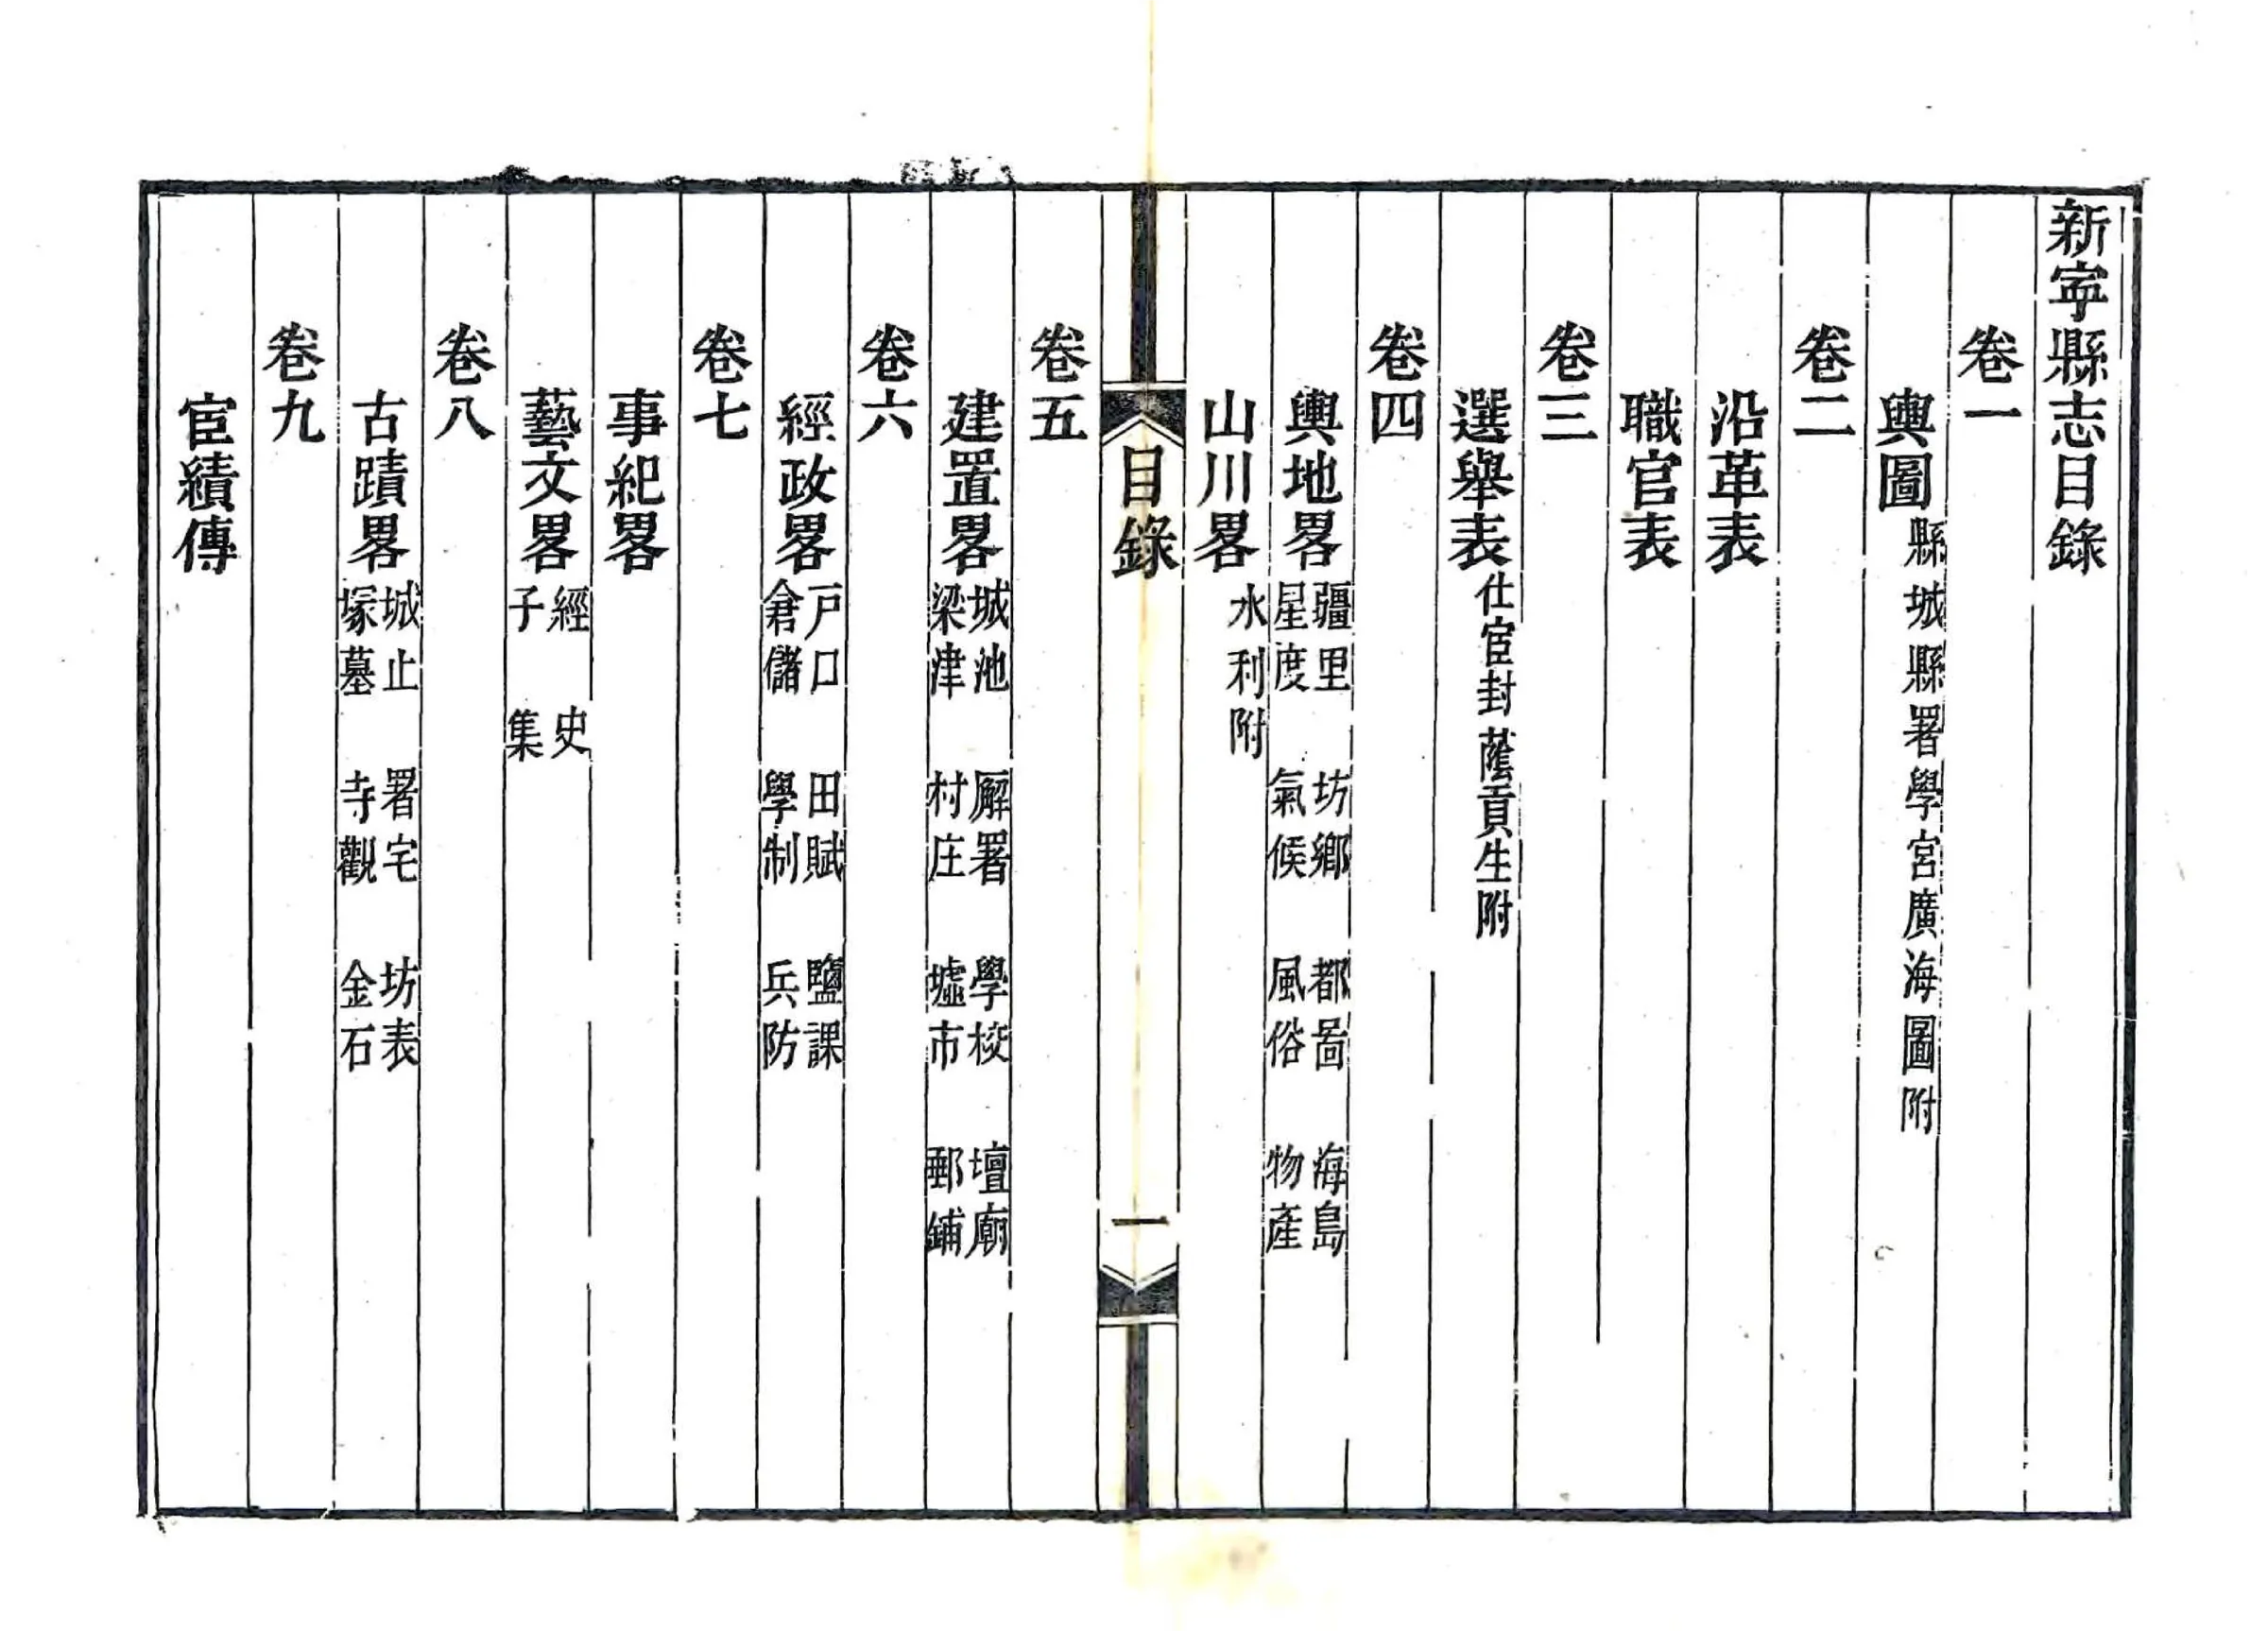 新寧縣志目錄
卷一
輿圖縣城縣署學宮廣海圖附
卷二
沿革表
職官表
卷三
選舉表仕宦封蔭貢生附
卷四
輿地畧疆里 坊鄉 都啚 海島
星度 氣候 風俗 物產
山川畧水利附
目錄
一
卷五
建置畧城池 廨署 學校 壇廟
梁津 村庄 墟市 郵鋪
卷六
經政畧戶口 田賦 鹽課
倉儲 學制 兵防
卷七
事紀畧
藝文畧經 史
子 集
卷八
古蹟畧城止 署宅 坊表
塚墓 寺觀 金石
卷九
宦績傳